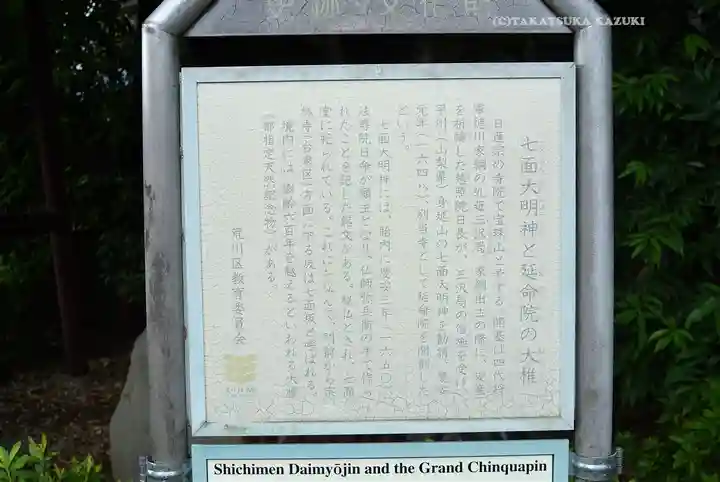 (C)TAKATSUKA KAZUKI
七面大明神と延命院の大椎
日蓮宗の寺院で宝珠山と号する。開基は四代将
軍徳川家綱の乳母三沢局。家綱出生の際に、安産
を祈願した慈照院日長が、三沢局の信施を受け、
甲州(山梨県)身延山の七面大明神を勧請、慶安
元年(一六四八)別当寺として延命院を開創した
という。
七面大明神には、胎内に慶安三年(一六五〇)、
法寿院日命が願主となり、仏師矢兵衛の手で作ら
れたことを記した銘文がある。秘仏とされ、七面
堂に祀られている。これにちなんで、門前から宗
林寺(台東区)方面に下る坂は七面坂と呼ばれる。
境内には、樹齢六百年を越えるといわれる大椎
(都指定天然記念物)がある。
荒川区教育委員会
Shichimen Daimyōjin and the Grand Chinquapin